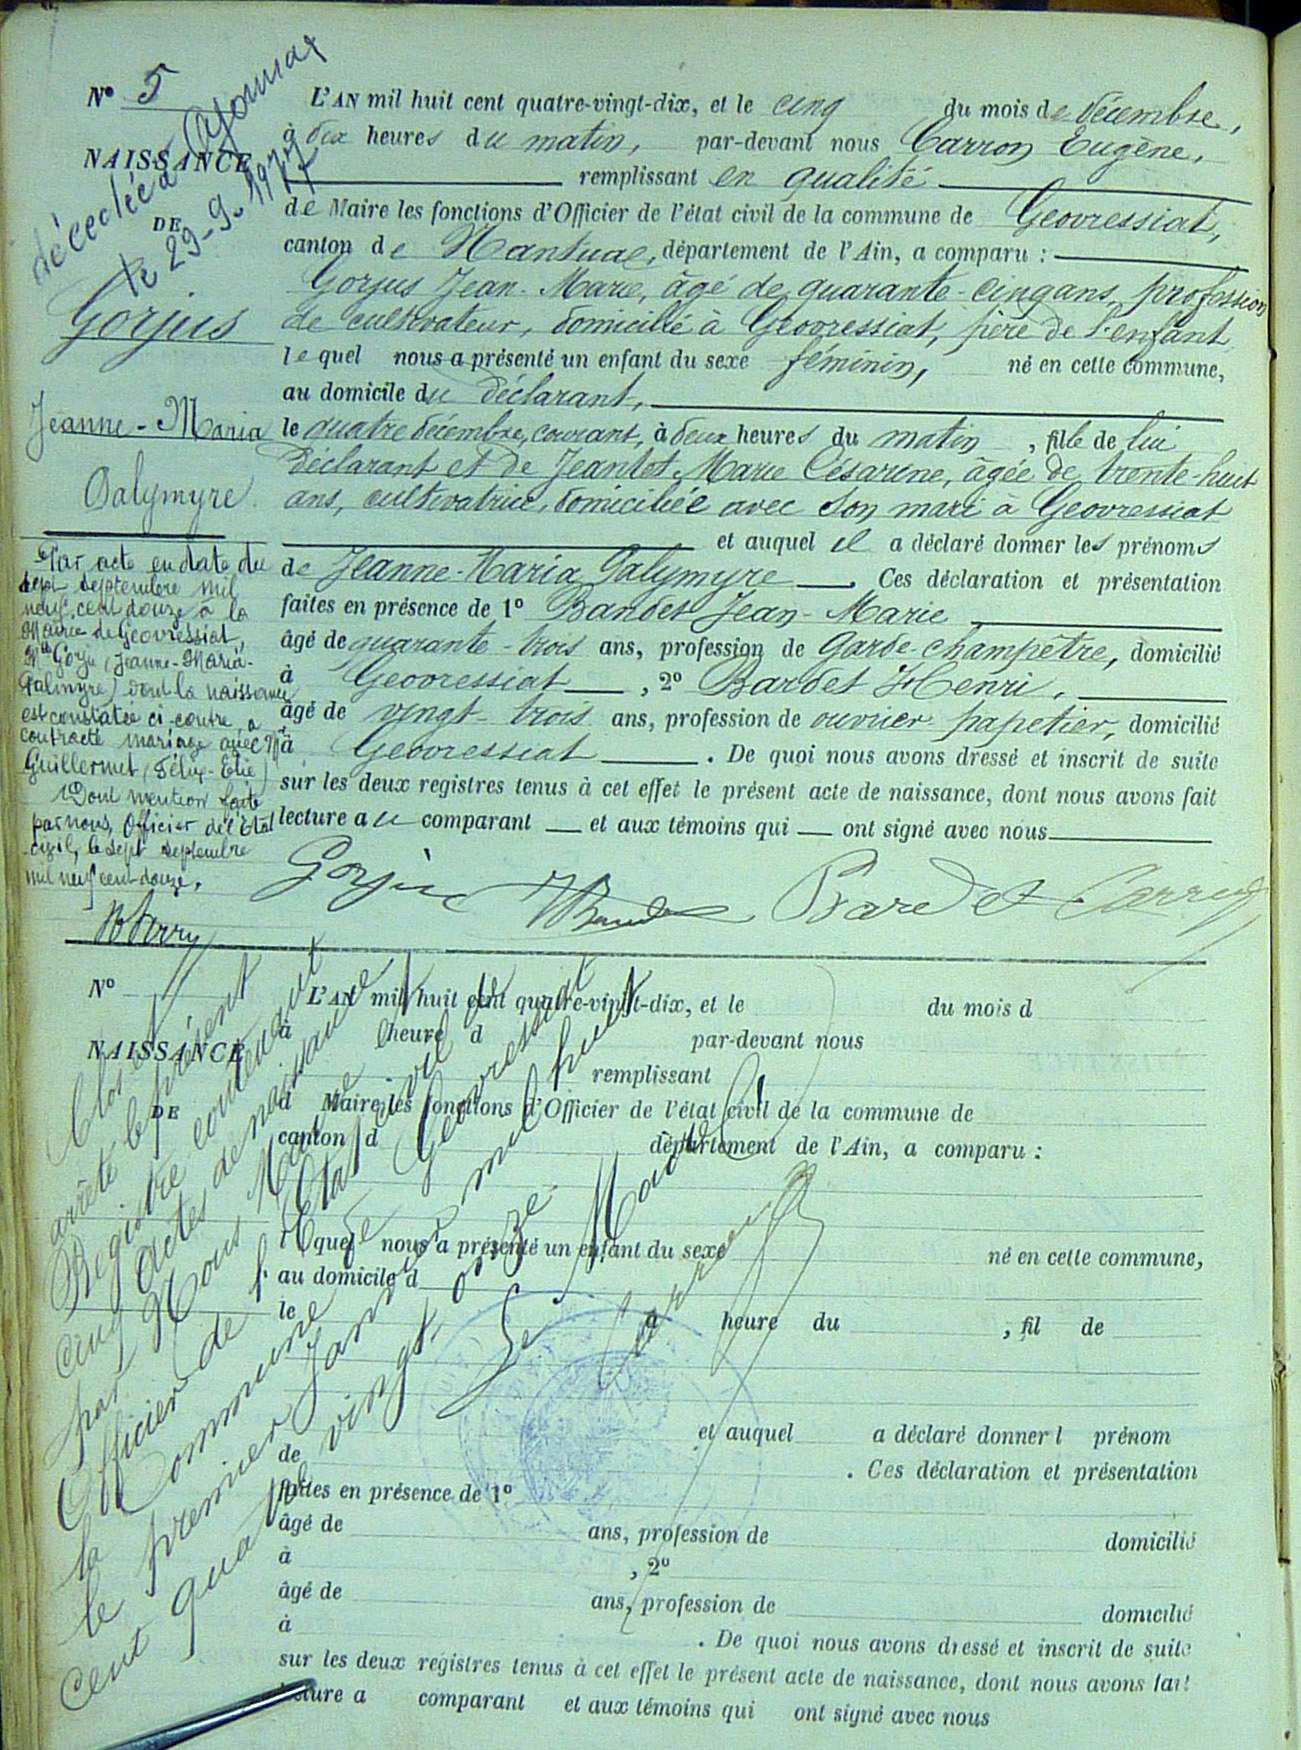 N° 5
NAISSANCE
DE
décédée à Oyonnax
le 29-9-1974
Gorjus
Jeanne-Maria
Palymyre
L'AN mil huit cent quatre-vingt-dix, et le cinq du mois de décembre,
à dix heures du matin, par-devant nous Carron Eugène,
remplissant en qualité
de Maire les fonctions d'Officier de l'état civil de la commune de Geovressiat,
canton de Nantua, département de l'Ain, a comparu :
Gorjus Jean-Marie, âgé de quarante-cinq ans, profession
de cultivateur, domicilié à Geovressiat, père de l'enfant
lequel nous a présenté un enfant du sexe féminin, né en cette commune,
au domicile du déclarant,
le quatre décembre, courant, à deux heures du matin, fille de lui
déclarant et de Jeantet Marie Césarine, âgée de trente-huit
ans, cultivatrice, domiciliée avec son mari à Geovressiat
et auquel il a déclaré donner les prénoms
de Jeanne-Maria Palymyre. Ces déclaration et présentation
faites en présence de 1° Bandet Jean-Marie
âgé de quarante-trois ans, profession de Garde-champêtre, domicilié
à Geovressiat, 2° Bardet Henri,
âgé de vingt-trois ans, profession de ouvrier papetier, domicilié
à Geovressiat. De quoi nous avons dressé et inscrit de suite
sur les deux registres tenus à cet effet le présent acte de naissance, dont nous avons fait
lecture au comparant et aux témoins qui ont signé avec nous
Par acte en date du
sept septembre mil
neuf cent douze à la
Mairie de Geovressiat,
Mlle Gorju (Jeanne-Maria-
Palmyre) dont la naissance
est constatée ci-contre a
contracté mariage avec Mr
Guillermet (Félix-Elie)
Dont mention faite
par nous, Officier de l'Etat
civil, le sept septembre
mil neuf cent douze.
Gorju Bandet Bardet Carron
N°
NAISSANCE
DE
L'AN mil huit cent quatre-vingt-dix, et le du mois d
à heure d par-devant nous
remplissant
d Maire les fonctions d'Officier de l'état civil de la commune de
canton d département de l'Ain, a comparu :
l quel nous a présenté un enfant du sexe né en cette commune,
au domicile d
le à heure du , fil de
et auquel a déclaré donner l prénom
de . Ces déclaration et présentation
faites en présence de 1°
âgé de ans, profession de domicilié
à , 2°
âgé de ans, profession de domicilié
à . De quoi nous avons dressé et inscrit de suite
sur les deux registres tenus à cet effet le présent acte de naissance, dont nous avons fait
lecture a comparant et aux témoins qui ont signé avec nous
Clos et
arrêté le présent
Registre contenant
cinq Actes de naissance
par Nous Maire
Officier de l'Etat civil de
la Commune de Geovressiat
le premier Janvier mil huit
cent quatre vingt-onze
Le Maire
Carron